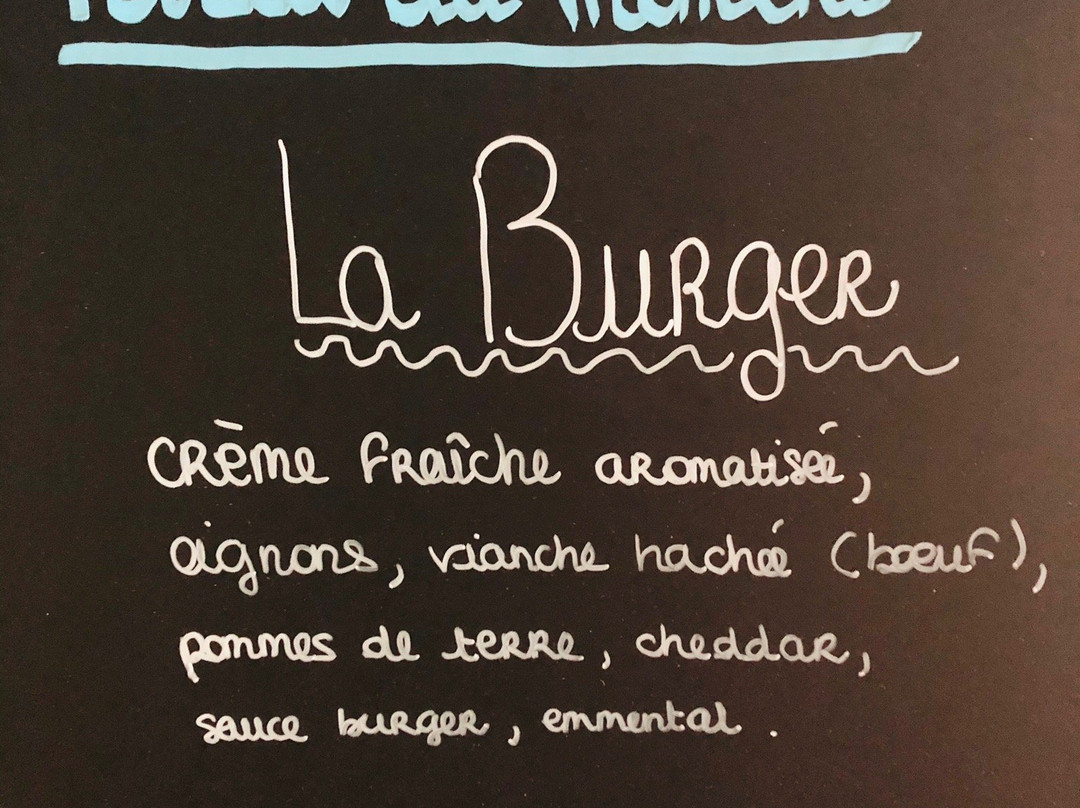 au moment
La Burger
crème fraîche aromatisée,
oignons, vianche hachée (boeuf),
pommes de terre, cheddar,
sauce burger, emmental.